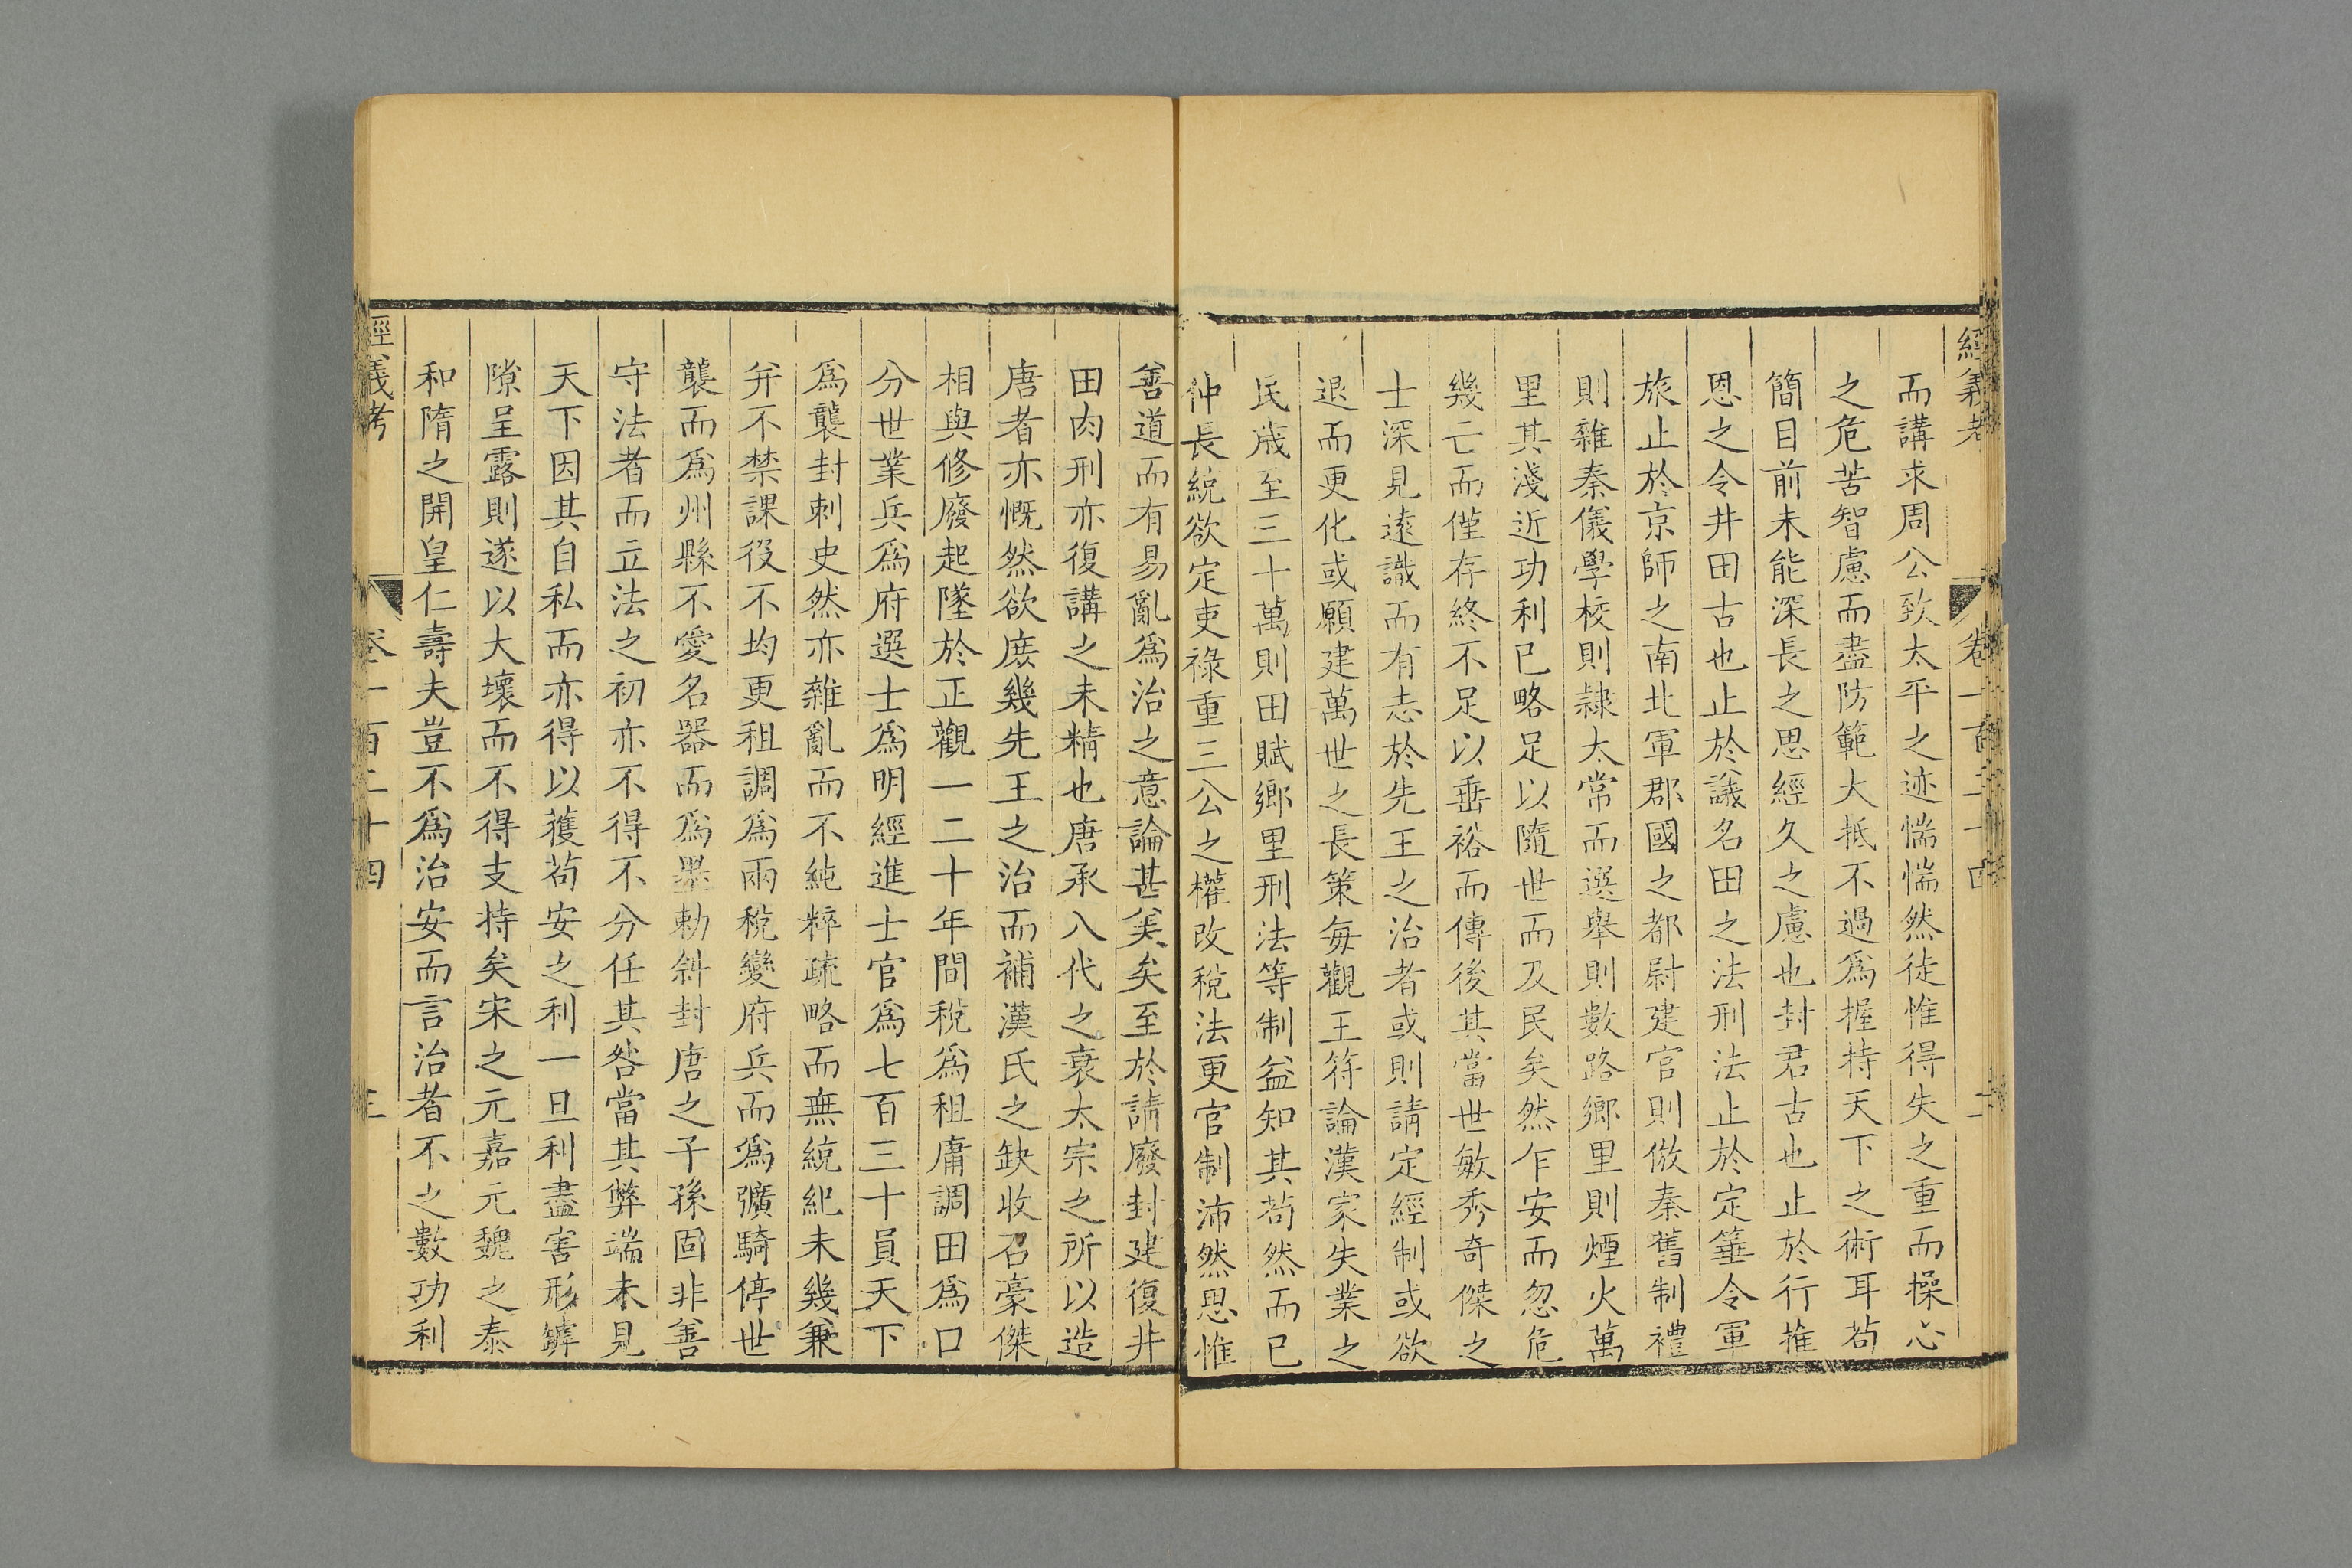 經義考 卷一百二十四 二
而講求周公致太平之迹惴惴然徒惟得失之重而操心
之危苦智慮而盡防範大抵不過爲握持天下之術耳苟
簡目前未能深長之思經久之慮也封君古也止於行推
恩之令井田古也止於議名田之法刑法止於定箠令軍
旅止於京師之南北軍郡國之都尉建官則倣秦舊制禮
則雜秦儀學校則隸太常而選舉則數路鄉里則煙火萬
里其淺近功利已略足以隨世而及民矣然乍安而忽危
幾亡而僅存終不足以垂裕而傳後其當世敏秀奇傑之
士深見遠識而有志於先王之治者或則請定經制或欲
退而更化或願建萬世之長策每觀王符論漢家失業之
民歲至三十萬則田賦鄉里刑法等制益知其苟然而已
仲長統欲定吏祿重三公之權改稅法更官制沛然思惟
善道而有易亂爲治之意論甚美矣至於請廢封建復井
田肉刑亦復講之未精也唐承八代之衰太宗之所以造
唐者亦慨然欲庶幾先王之治而補漢氏之缺收召豪傑
相與修廢起墜於正觀一二十年間稅爲租庸調田爲口
分世業兵爲府選士爲明經進士官爲七百三十員天下
爲襲封刺史然亦雜亂而不純粹疏略而無統紀未幾兼
并不禁課役不均更租調爲兩稅變府兵而爲彍騎停世
襲而爲州縣不愛名器而爲墨勅斜封唐之子孫固非善
守法者而立法之初亦不得不分任其咎當其弊端未見
天下因其自私而亦得以獲苟安之利一旦利盡害形罅
隙呈露則遂以大壞而不得支持矣宋之元嘉元魏之泰
和隋之開皇仁壽夫豈不爲治安而言治者不之數功利
經義考 卷一百二十四 三